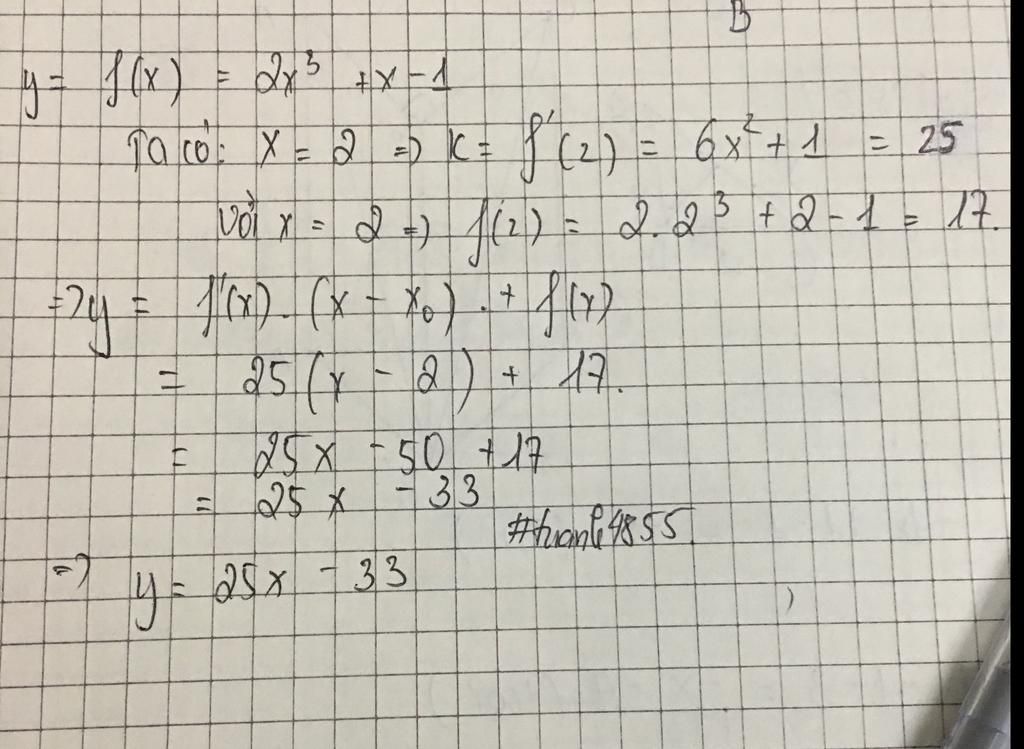 B
y = f(x) = 2x³ + x - 1
Ta có: x = 2 => K = f'(2) = 6x² + 1 = 25
Với x = 2 => f(2) = 2.2³ + 2 - 1 = 17.
=> y = f'(x). (x - x₀) . + f(x)
= 25 (x - 2) + 17.
= 25x - 50 + 17
= 25x - 33
#tuanle4855
=> y = 25x - 33